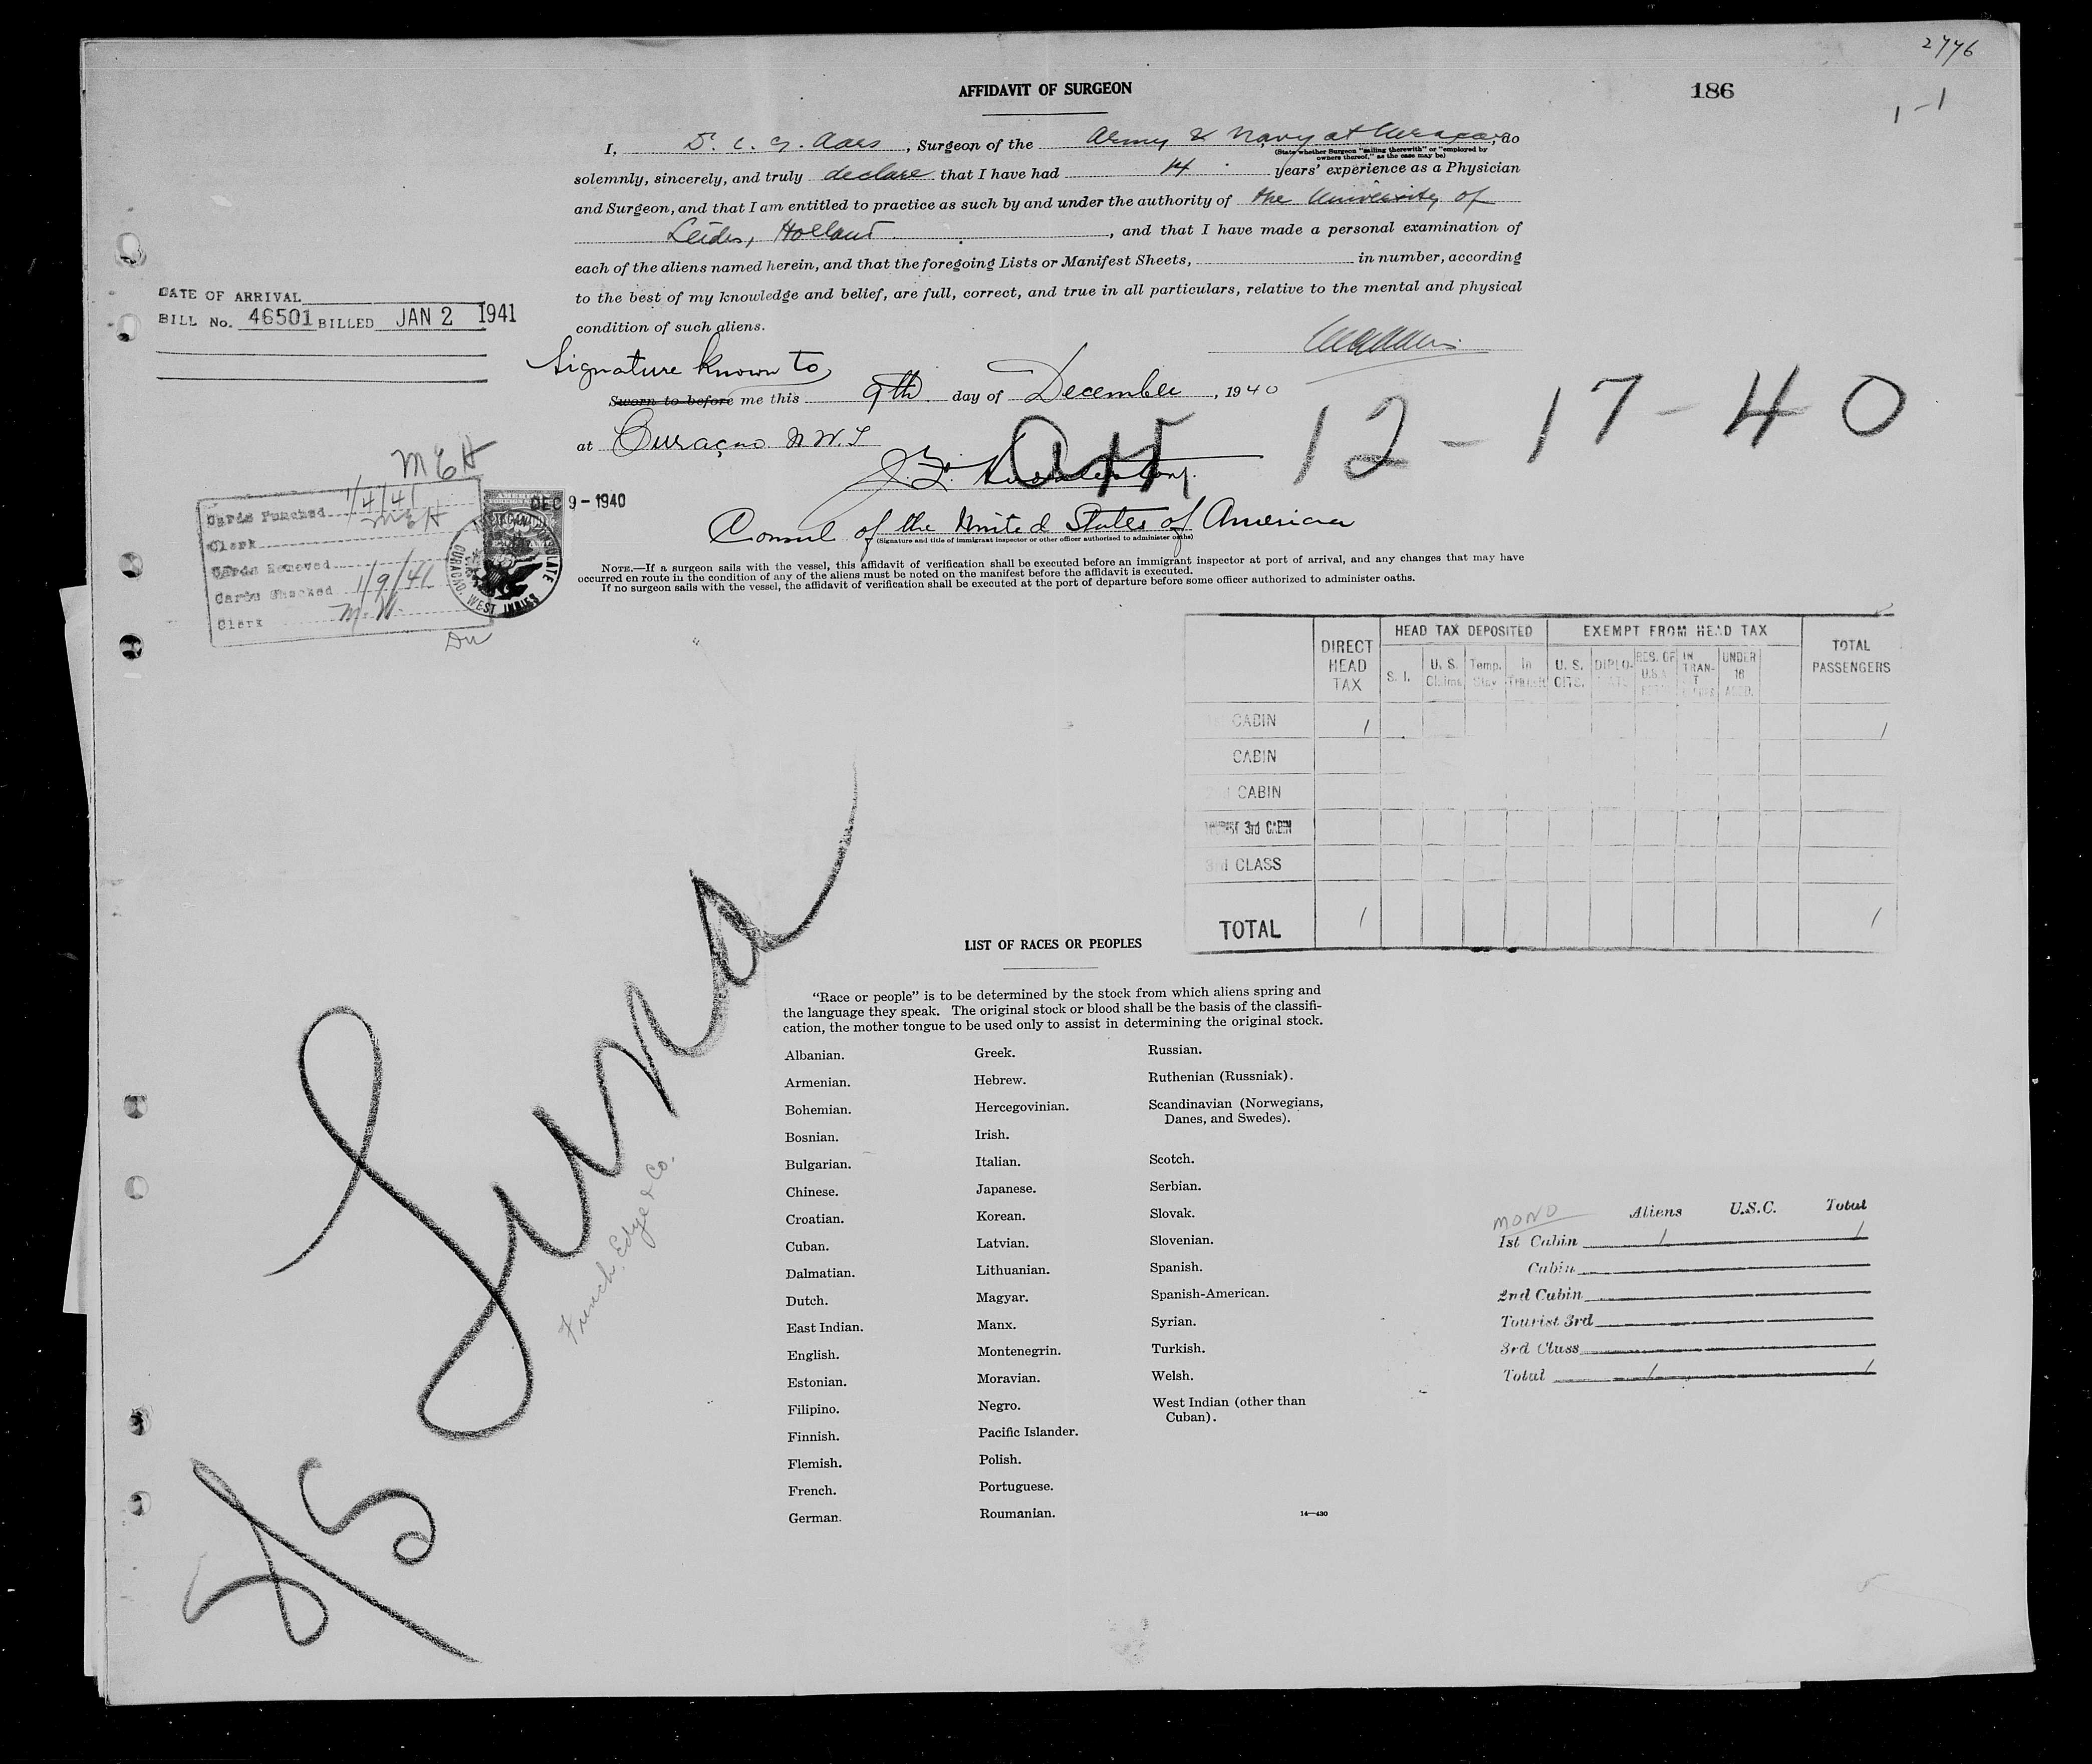 2776
186
1-1
AFFIDAVIT OF SURGEON
I, D. C. G. Aars, Surgeon of the Army & Navy at Curaçao, do
(State whether Surgeon "sailing therewith" or "employed by
owners thereof," as the case may be)
solemnly, sincerely, and truly declare that I have had 14 years' experience as a Physician
and Surgeon, and that I am entitled to practice as such by and under the authority of the University of
Leiden, Holland, and that I have made a personal examination of
each of the aliens named herein, and that the foregoing Lists or Manifest Sheets, in number, according
to the best of my knowledge and belief, are full, correct, and true in all particulars, relative to the mental and physical
condition of such aliens.
DATE OF ARRIVAL
BILL No. 46501 BILLED JAN 2 1941
Signature known to
Sworn to before me this 9th day of December, 1940
at Curaçao N.W.I.
12-17-40
Consul of the United States of America
(Signature and title of immigrant inspector or other officer authorized to administer oaths)
MEH
Cards Punched 1/4/41
Clerk MEH
Cards Removed
Cards Checked 1/9/41
Clerk M.W.
DEC 9-1940
AMERICAN CONSULATE
CURACAO, WEST INDIES
NOTE.—If a surgeon sails with the vessel, this affidavit of verification shall be executed before an immigrant inspector at port of arrival, and any changes that may have
occurred en route in the condition of any of the aliens must be noted on the manifest before the affidavit is executed.
If no surgeon sails with the vessel, the affidavit of verification shall be executed at the port of departure before some officer authorized to administer oaths.
DIRECT HEAD TAX
HEAD TAX DEPOSITED
EXEMPT FROM HEAD TAX
TOTAL PASSENGERS
S. I.
U. S. Claims
Temp. Stay
In Transit
U. S. CITS.
DIPLO-
RES. OF U.S.A.
IN TRAN-
UNDER 16 ACCD.
1st CABIN 1 1
CABIN
2nd CABIN
TOURIST 3rd CABIN
3rd CLASS
TOTAL 1 1
S/S Luna
French, Edye & Co.
LIST OF RACES OR PEOPLES
"Race or people" is to be determined by the stock from which aliens spring and
the language they speak. The original stock or blood shall be the basis of the classifi-
cation, the mother tongue to be used only to assist in determining the original stock.
Albanian.
Armenian.
Bohemian.
Bosnian.
Bulgarian.
Chinese.
Croatian.
Cuban.
Dalmatian.
Dutch.
East Indian.
English.
Estonian.
Filipino.
Finnish.
Flemish.
French.
German.
Greek.
Hebrew.
Hercegovinian.
Irish.
Italian.
Japanese.
Korean.
Latvian.
Lithuanian.
Magyar.
Manx.
Montenegrin.
Moravian.
Negro.
Pacific Islander.
Polish.
Portuguese.
Roumanian.
Russian.
Ruthenian (Russniak).
Scandinavian (Norwegians,
Danes, and Swedes).
Scotch.
Serbian.
Slovak.
Slovenian.
Spanish.
Spanish-American.
Syrian.
Turkish.
Welsh.
West Indian (other than
Cuban).
14—430
MONO Aliens U.S.C. Total
1st Cabin 1 1
Cabin
2nd Cabin
Tourist 3rd
3rd Class
Total 1 1